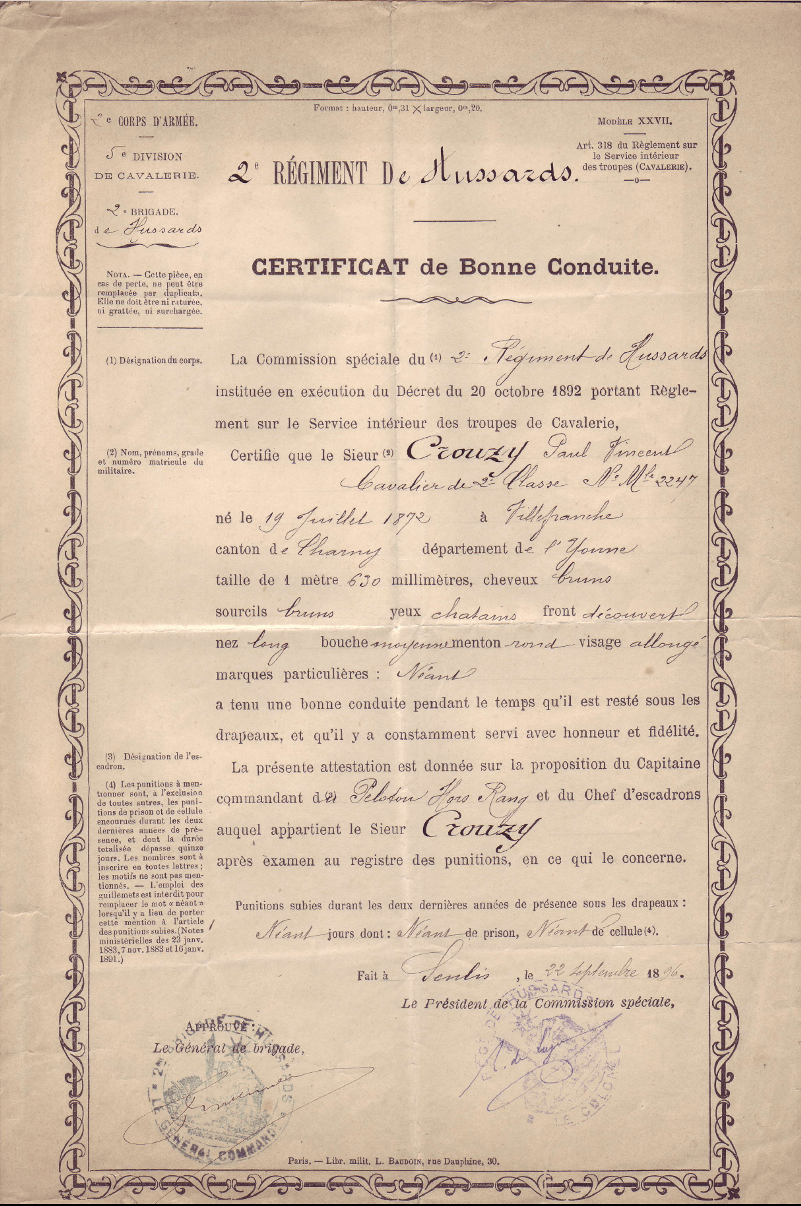 Format : hauteur, 0m,31 × largeur, 0m,20.
2e CORPS D'ARMÉE.
5e DIVISION
DE CAVALERIE.
2e BRIGADE.
de Hussards
MODÈLE XXVII.
Art. 318 du Règlement sur
le Service intérieur
des troupes (CAVALERIE).
2e RÉGIMENT De Hussards.
CERTIFICAT de Bonne Conduite.
NOTA. — Cette pièce, en
cas de perte, ne peut être
remplacée par duplicata.
Elle ne doit être ni raturée,
ni grattée, ni surchargée.
(1) Désignation du corps.
La Commission spéciale du (1) 2e Régiment de Hussards
instituée en exécution du Décret du 20 octobre 1892 portant Règle-
ment sur le Service intérieur des troupes de Cavalerie,
(2) Nom, prénoms, grade
et numéro matricule du
militaire.
Certifie que le Sieur (2) Crouzy Paul Vincent
Cavalier de 2e Classe No Mle 2247
né le 19 Juillet 1872 à Villefranche
canton de Charny département de l'Yonne
taille de 1 mètre 630 millimètres, cheveux bruns
sourcils bruns yeux chatains front découvert
nez long bouche moyenne menton rond visage allongé
marques particulières : Néant
a tenu une bonne conduite pendant le temps qu'il est resté sous les
drapeaux, et qu'il y a constamment servi avec honneur et fidélité.
(3) Désignation de l'es-
cadron.
(4) Les punitions à men-
tionner sont, à l'exclusion
de toutes autres, les puni-
tions de prison et de cellule
encourues durant les deux
dernières années de pré-
sence, et dont la durée
totalisée dépasse quinze
jours. Les nombres sont à
inscrire en toutes lettres ;
les motifs ne sont pas men-
tionnés. — L'emploi des
guillemets est interdit pour
remplacer le mot « néant »
lorsqu'il y a lieu de porter
cette mention à l'article
des punitions subies. (Notes
ministérielles des 23 janv.
1883, 7 nov. 1883 et 16 janv.
1891.)
La présente attestation est donnée sur la proposition du Capitaine
commandant du Peloton Hors Rang et du Chef d'escadrons
auquel appartient le Sieur Crouzy
après examen au registre des punitions, en ce qui le concerne.
Punitions subies durant les deux dernières années de présence sous les drapeaux :
Néant jours dont : Néant de prison, Néant de cellule (4).
Fait à Senlis, le 22 Septembre 1896.
Le Président de la Commission spéciale,
APPROUVÉ :
Le Général de brigade,
2e BRIGADE DE HUSSARDS
LE GENERAL COMMANDT
HUSSARDS
LE COLONEL
Paris. — Libr. milit. L. BAUDOIN, rue Dauphine, 30.